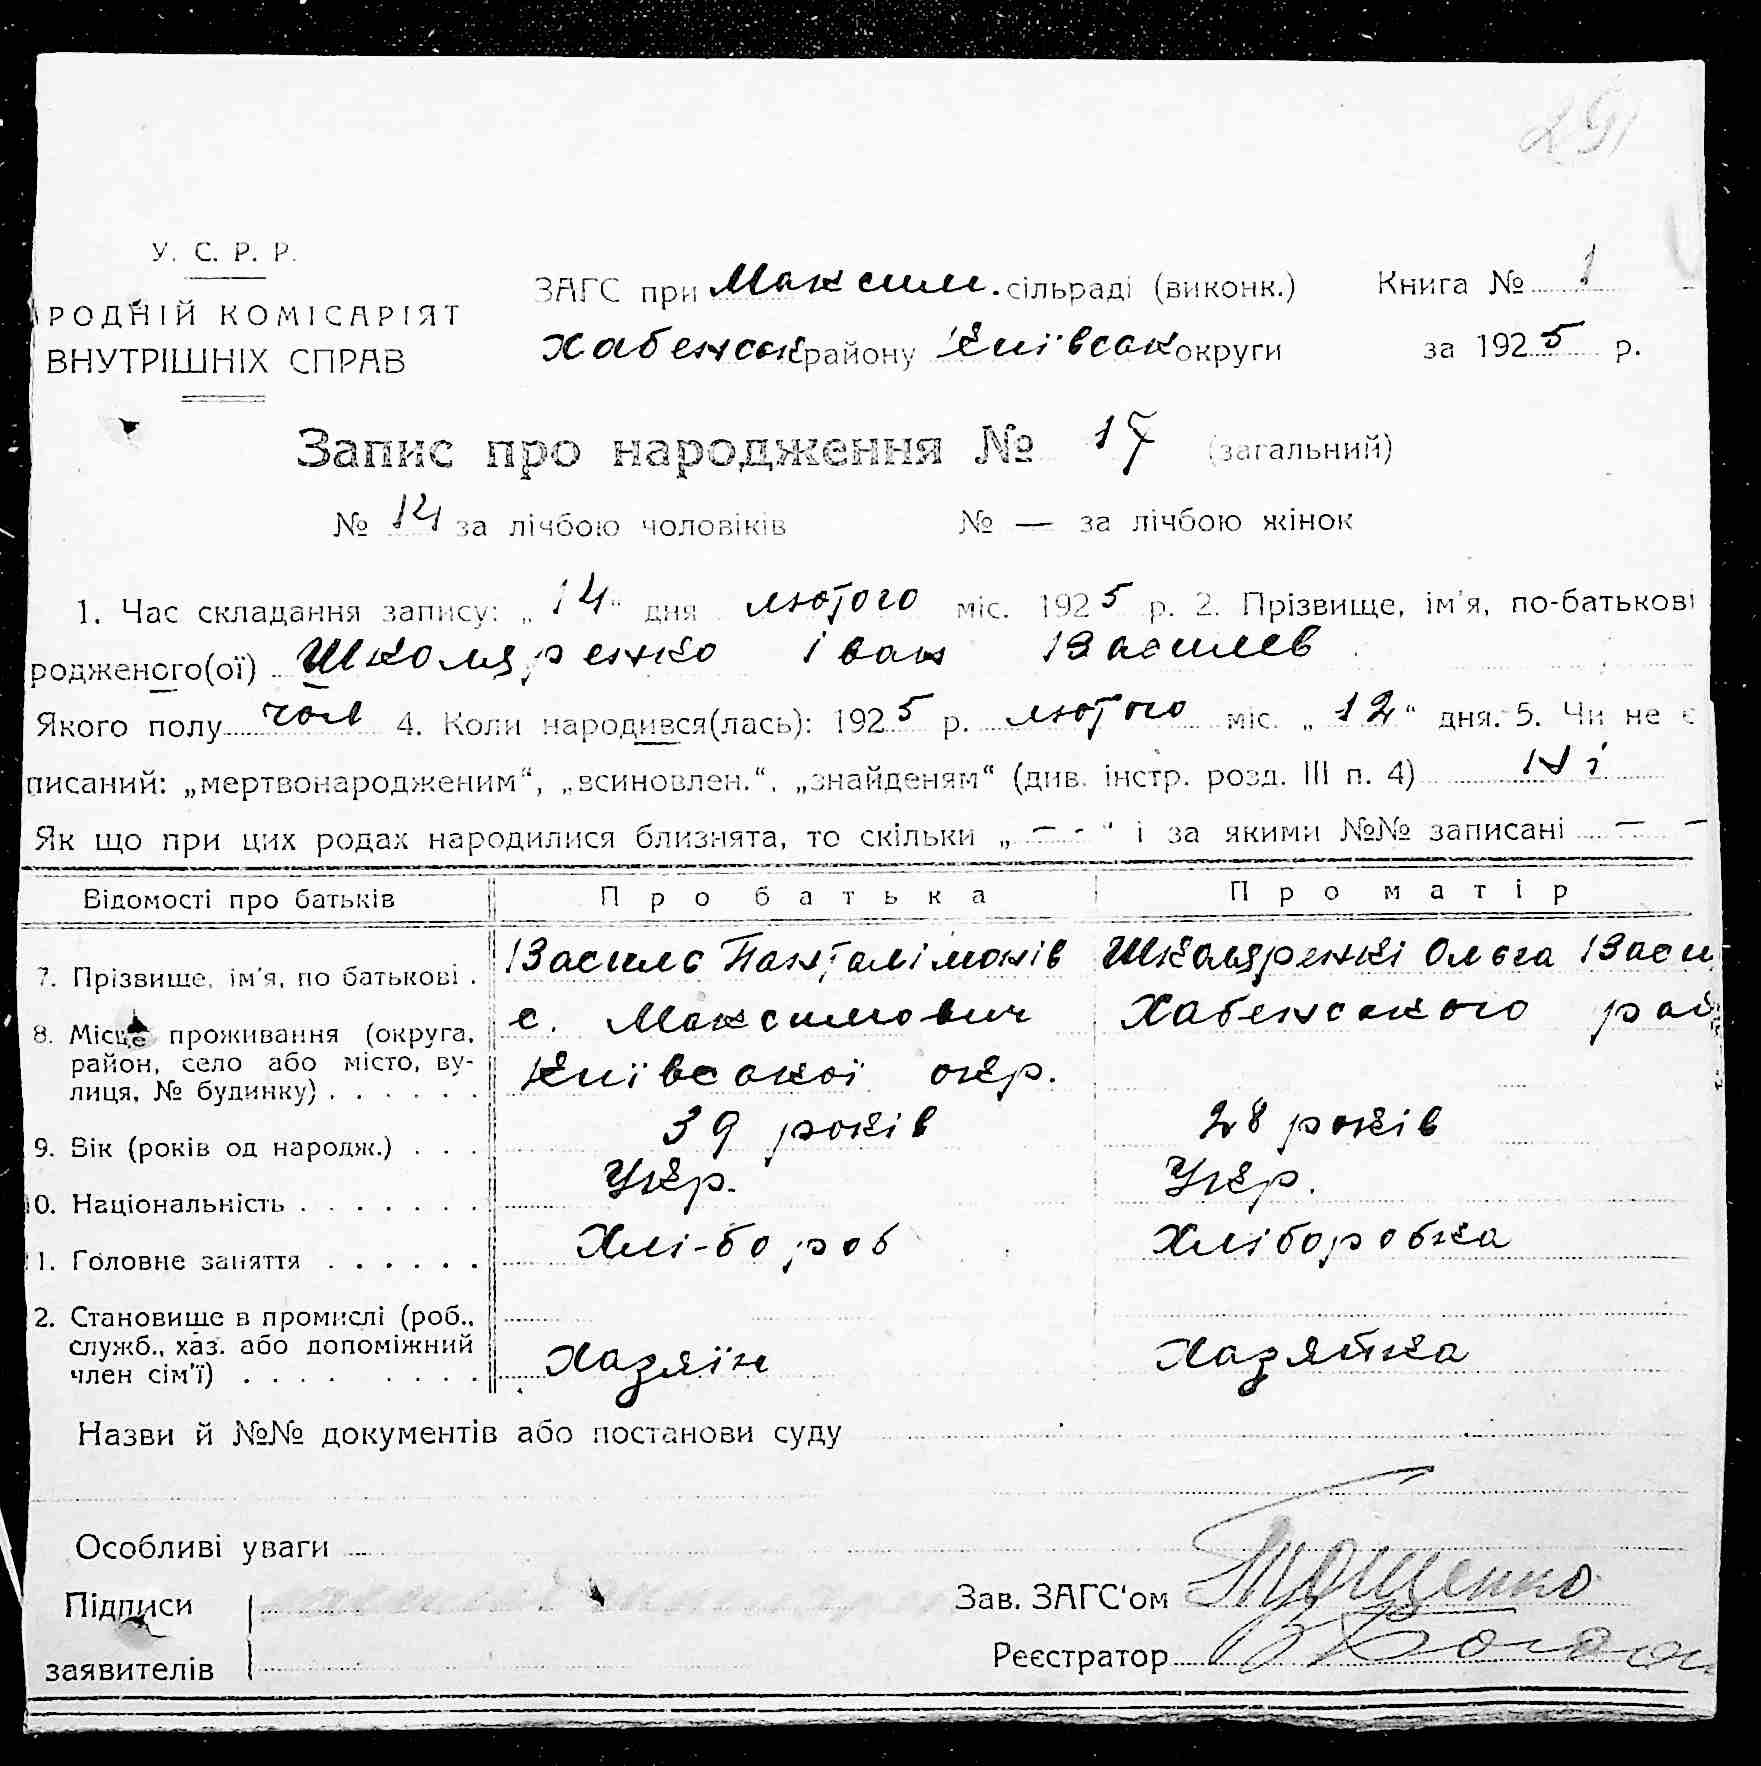 291
У. С. Р. Р.
РОДНІЙ КОМІСАРІЯТ
ВНУТРІШНІХ СПРАВ
ЗАГС при Максим. сільраді (виконк.)
Хабенськ району Київськ округи
Книга № 1
за 1925 р.
Запис про народження № 17 (загальний)
№ 14 за лічбою чоловіків № — за лічбою жінок
1. Час складання запису: „14" дня лютого міс. 1925 р. 2. Прізвище, ім'я, по-батькові
родженого(ої) Школяренко Іван Василев
Якого полу чол 4. Коли народився(лась): 1925 р. лютого міс. „12" дня. 5. Чи не є
писаний: „мертвонародженим", „всиновлен.", „знайденям" (див. інстр. розд. III п. 4) Ні
Як що при цих родах народилися близнята, то скільки „— -" і за якими №№ записані — —
Відомості про батьків Про батька Про матір
7. Прізвище, ім'я, по батькові . Василь Панталімонів Школяренкі Ольга Васи
8. Місце проживання (округа, район, село або місто, вулиця, № будинку) . . . . . . с. Максимович Хабенського рай
Київської окр.
9. Вік (років од народж.) . . . 39 років 28 років
10. Національність . . . . . . . Укр. Укр.
1. Головне заняття . . . . . . Хлі-бороб Хліборобка
2. Становище в промислі (роб., служб., хаз. або допоміжний член сім'ї) . . . . . . . . Хазяїн Хазяйка
Назви й №№ документів або постанови суду
Особливі уваги
Підписи
заявителів
Зав. ЗАГС'ом
Реєстратор